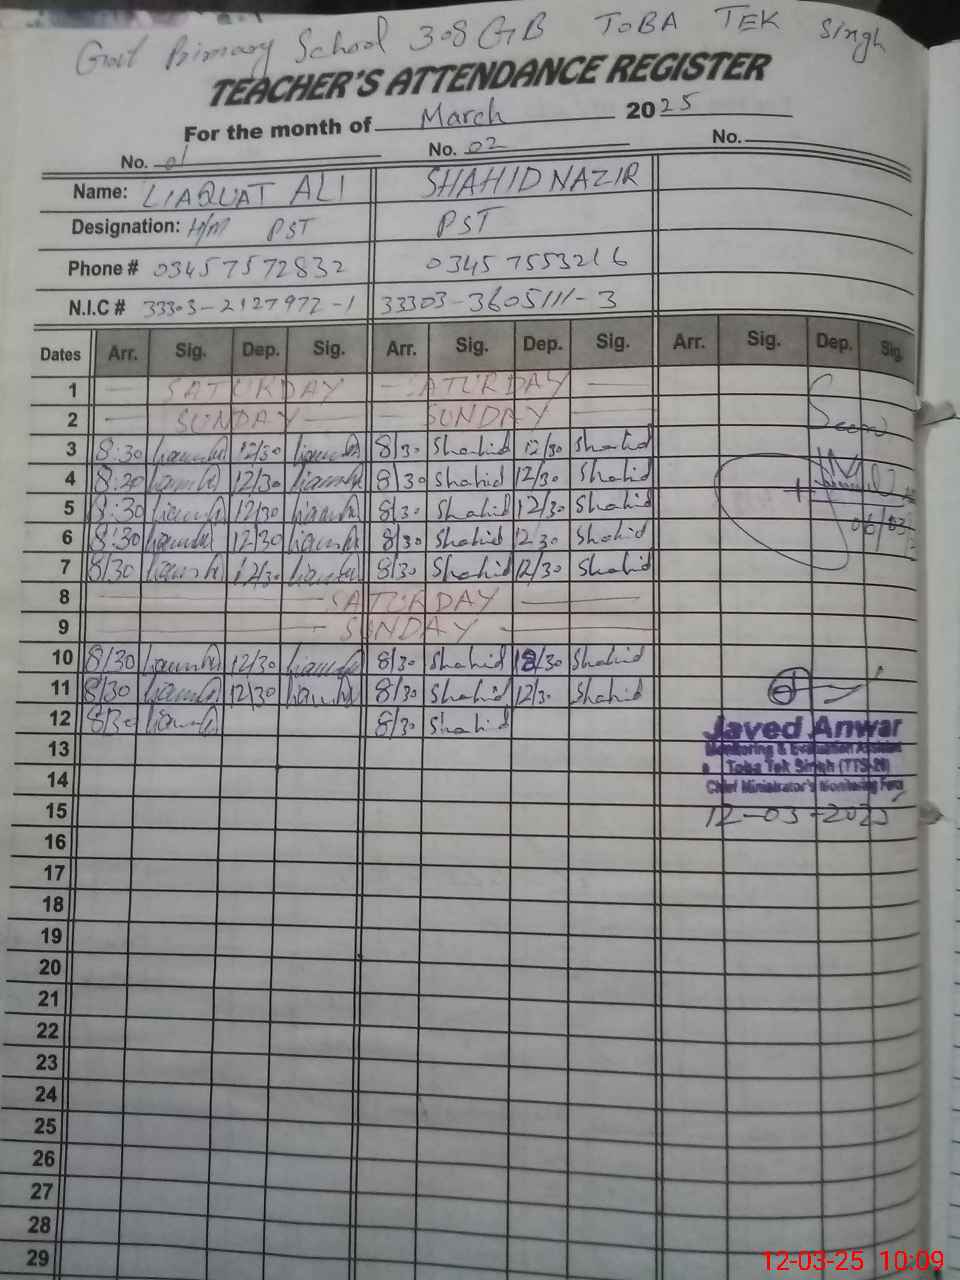 Govt Primary School 308 GB TOBA TEK Singh
TEACHER'S ATTENDANCE REGISTER
For the month of March 2025
No. 01 No. 02 No.
Name: LIAQUAT ALI SHAHID NAZIR
Designation: H/M PST PST
Phone # 03457572832 03457553216
N.I.C # 33303-2127972-1 33303-3605111-3
Dates Arr. Sig. Dep. Sig. Arr. Sig. Dep. Sig. Arr. Sig. Dep. Sig.
1 — SATURDAY — SATURDAY —
2 — SUNDAY — SUNDAY —
Seen
3 8:30 12/30 8/30 Shahid 12/30 Shahid
4 8:20 12/30 8/30 Shahid 12/30 Shahid
5 8:30 12/30 8/30 Shahid 12/30 Shahid
6 8:30 12/30 8/30 Shahid 12/30 Shahid
06/03
7 8/30 12/30 8/30 Shahid 12/30 Shahid
8 — SATURDAY —
9 — SUNDAY —
10 8/30 12/30 8/30 Shahid 12/30 Shahid
11 8/30 12/30 8/30 Shahid 12/30 Shahid
12 8/30 8/30 Shahid
Javed Anwar
13
Monitoring & Evaluation Assistant
Toba Tek Singh (TTS-20)
14
Chief Minister's Monitoring Force
15
12-03-2025
16
17
18
19
20
21
22
23
24
25
26
27
28
29
12-03-25 10:09